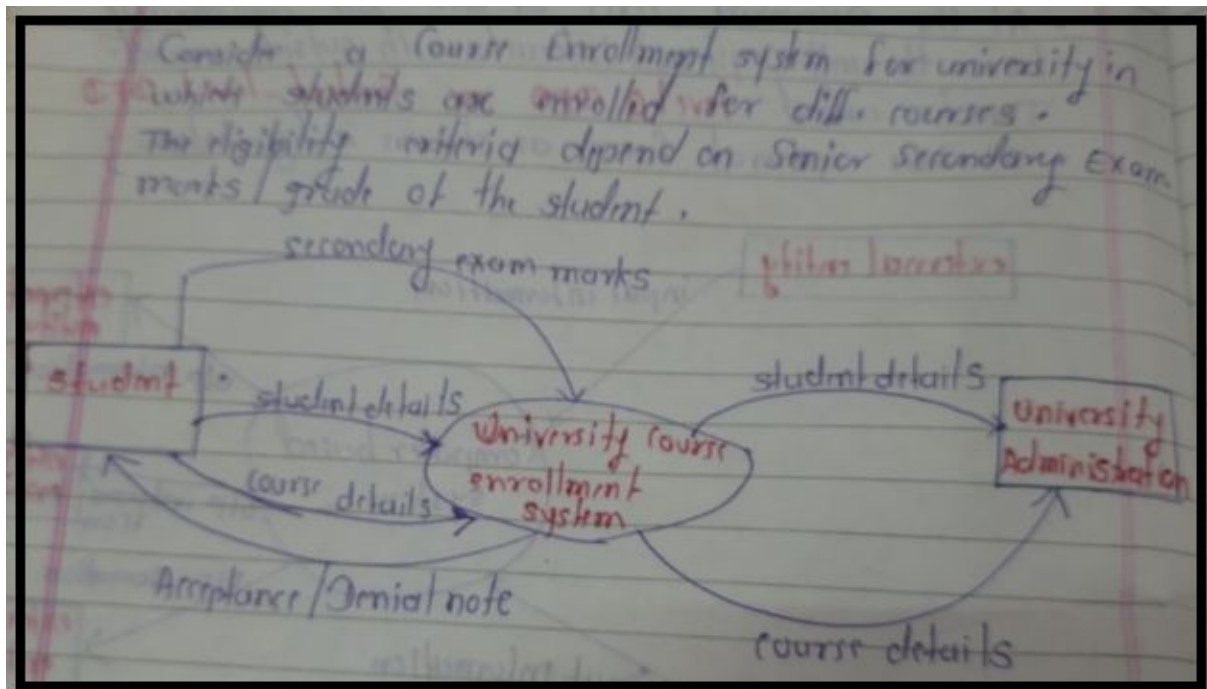 Consider a Course Enrollment system for university in
which students are enrolled for diff. courses.
The eligibility criteria depend on Senior Secondary Exam
marks/grade of the student.
secondary exam marks
student
student details
course details
Acceptance/Denial note
University course
enrollment
system
student details
University
Administration
course details